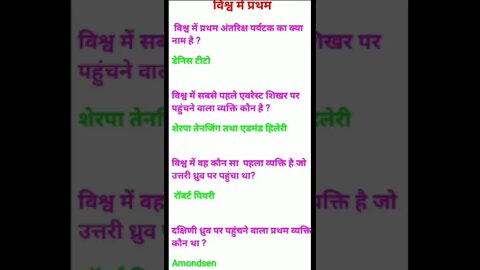 विश्व में प्रथम
विश्व में प्रथम अंतरिक्ष पर्यटक का क्या
नाम है ?
डेनिस टीटो
विश्व में सबसे पहले एवरेस्ट शिखर पर
पहुंचने वाला व्यक्ति कौन है ?
शेरपा तेनजिंग तथा एडमंड हिलेरी
विश्व में वह कौन सा पहला व्यक्ति है जो
उत्तरी ध्रुव पर पहुंचा था?
रॉबर्ट पियरी
दक्षिणी ध्रुव पर पहुंचने वाला प्रथम व्यक्ति
कौन था ?
Amondsen
विश्व में सब
पहुंचने वाल
विश्व में वह
उत्तरी ध्रुव प
शिखर पर
?
यक्ति है जो